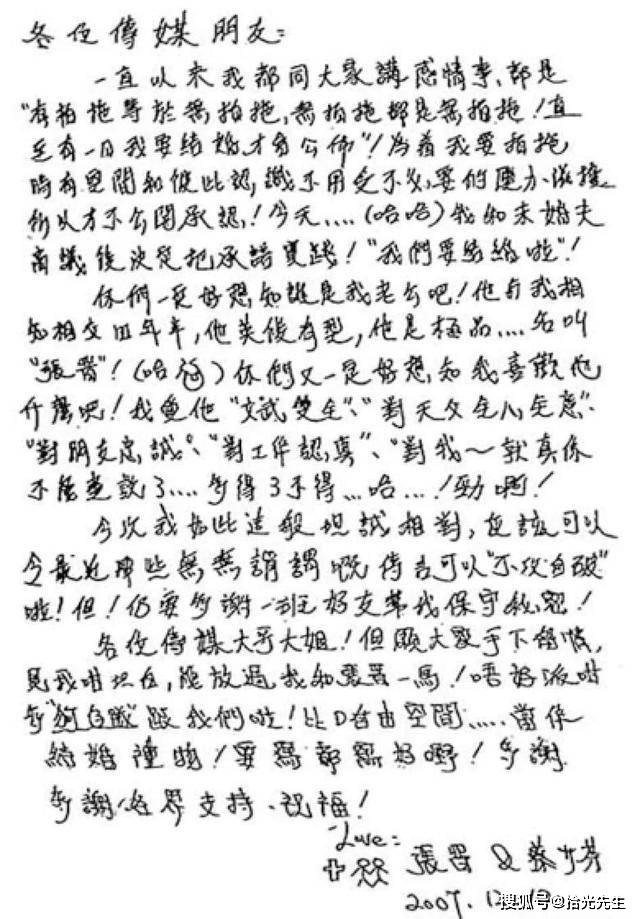 各位傳媒朋友：
一直以來我都同大家講感情事，都是
"有拍拖等於無拍拖，無拍拖都是無拍拖！直
至有一日我要結婚才會公佈"！為着我要拍拖
時有空間和彼此認識不用受不必要的壓力滋擾
所以才不公開承認！今天....(哈哈)我和未婚夫
商議後決定把承諾實踐！"我們要結婚啦"！
你們一定好想知誰是我老公吧！他与我相
知相交四年半，他英俊有型，他是極品....名叫
"張晉"！(哈哈)你們又一定好想知我喜歡他
什麼吧！我愛他"文武雙全"、"對天父全心全意"、
"對朋友忠誠"、"對工作認真"、"對我～就真係
不能盡說了....多得3不得...哈...！勁啊！
今次我如此這般坦誠相對，應該可以
令最近那些無無謂謂嘅傳言可以"不攻自破"
啦！但！仍要多謝一班好友幫我保守秘密！
各位傳媒大哥大姐！但願大家手下留情，
見我咁坦白，能放過我和張晉一馬！唔好派咁
多"狗仔隊"跟我們啦！比D自由空間.....當係
結婚禮物！要寫都寫好嘢！多謝
多謝各界支持、祝福！
Love：
張晉 & 蔡少芬
2007.12.
搜狐号@拾光先生